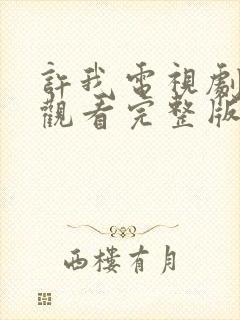 許我電視劇
觀看完整版
西樓有月